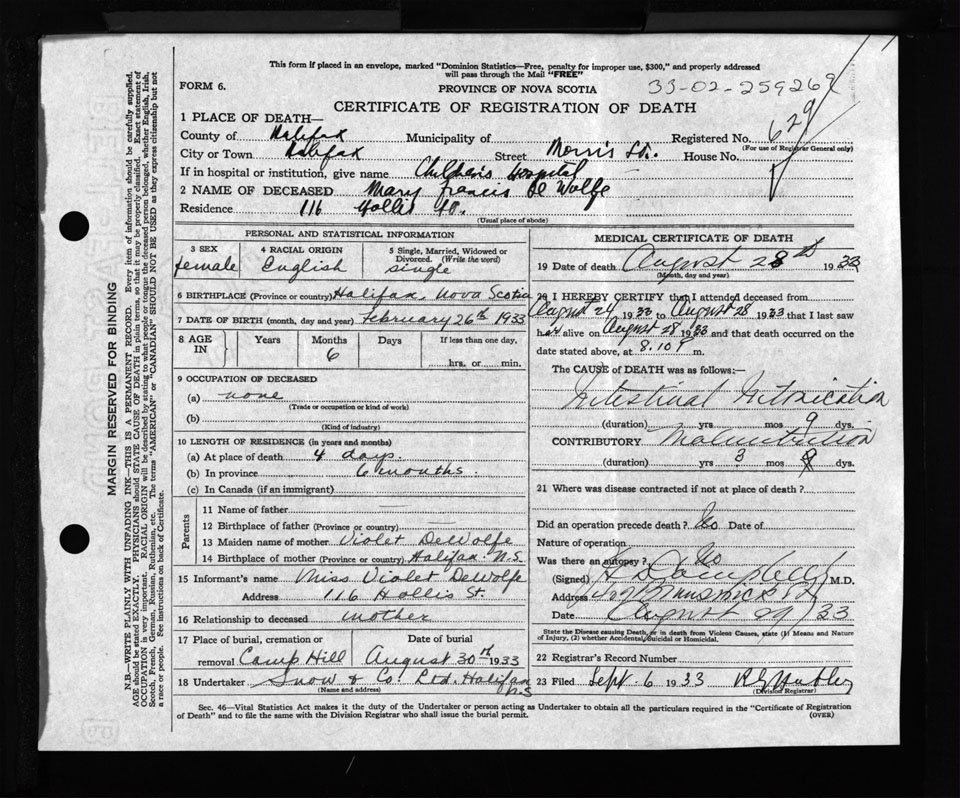 This form if placed in an envelope, marked "Dominion Statistics—Free, penalty for improper use, $300," and properly addressed
will pass through the Mail "FREE"
FORM 6.
PROVINCE OF NOVA SCOTIA
33-02-259269
CERTIFICATE OF REGISTRATION OF DEATH
1 PLACE OF DEATH—
County of Halifax Municipality of Registered No. 629
(For use of Registrar General only)
City or Town Halifax Street Morris St. House No.
If in hospital or institution, give name Children's Hospital
2 NAME OF DECEASED Mary Francis De Wolfe
Residence 116 Hollis St.
(Usual place of abode)
PERSONAL AND STATISTICAL INFORMATION
3 SEX 4 RACIAL ORIGIN 5 Single, Married, Widowed or
Divorced. (Write the word)
female English single
6 BIRTHPLACE (Province or country) Halifax, Nova Scotia
7 DATE OF BIRTH (month, day and year) February 26th 1933
8 AGE IN Years Months Days If less than one day,
6
hrs. or min.
9 OCCUPATION OF DECEASED
(a) none
(Trade or occupation or kind of work)
(b)
(Kind of industry)
10 LENGTH OF RESIDENCE (in years and months)
(a) At place of death 4 days.
(b) In province 6 months.
(c) In Canada (if an immigrant)
Parents
11 Name of father —
12 Birthplace of father (Province or country) —
13 Maiden name of mother Violet DeWolfe
14 Birthplace of mother (Province or country) Halifax N.S.
15 Informant's name Miss Violet DeWolfe
Address 116 Hollis St.
16 Relationship to deceased mother
17 Place of burial, cremation or Date of burial
removal Camp Hill August 30th 1933
18 Undertaker Snow & Co. Ltd. Halifax
N.S
(Name and address)
MEDICAL CERTIFICATE OF DEATH
19 Date of death August 28th 1933
(Month, day and year)
20 I HEREBY CERTIFY that I attended deceased from
August 24 1933 to August 28 1933 that I last saw
her alive on August 28 1933 and that death occurred on the
date stated above, at 8.10 P m.
The CAUSE of DEATH was as follows:—
Intestinal Intoxication
(duration) yrs mos 9 dys.
CONTRIBUTORY Malnutrition
(duration) yrs 3 mos dys.
21 Where was disease contracted if not at place of death?
Did an operation precede death? No Date of
Nature of operation
Was there an autopsy? No
(Signed) Campbell M.D.
Address
Date August 29/33
State the Disease causing Death, or in death from Violent Causes, state (1) Means and Nature
of Injury, (2) whether Accidental, Suicidal or Homicidal.
22 Registrar's Record Number
23 Filed Sept 6 1933
(Division Registrar)
Sec. 46—Vital Statistics Act makes it the duty of the Undertaker or person acting as Undertaker to obtain all the particulars required in the "Certificate of Registration
of Death" and to file the same with the Division Registrar who shall issue the burial permit.
(OVER)
MARGIN RESERVED FOR BINDING
N.B.—WRITE PLAINLY WITH UNFADING INK—THIS IS A PERMANENT RECORD. Every item of information should be carefully supplied.
AGE should be stated EXACTLY. PHYSICIANS should STATE CAUSE OF DEATH in plain terms, so that it may be properly classified. Exact statement of
OCCUPATION is very important. RACIAL ORIGIN will be described by stating to what people or tongue the deceased person belonged, whether English, Irish,
Scotch, French, German, Russian, Ruthenian, etc. The terms "AMERICAN" or "CANADIAN" SHOULD NOT BE USED as they express citizenship but not
a race or people. See instructions on back of Certificate.